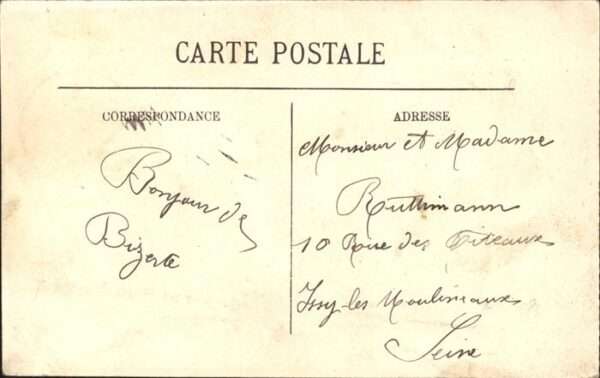 CARTE POSTALE
CORRESPONDANCE
Bonjour de
Bizerte
ADRESSE
Monsieur et Madame
Ruttimann
10 Rue des
Issy-les Moulineaux
Seine